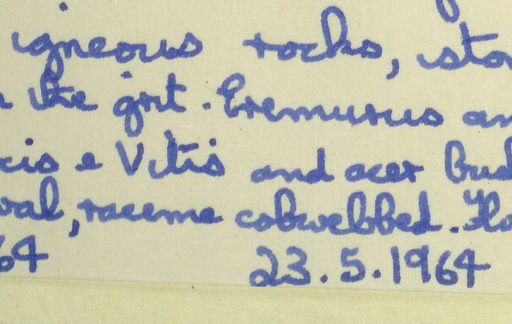 igneous rocks, sto
the grit. Eremurus an
cis e Vitis and acer bud
val, raceme cobwebbed. Flo
64 23.5.1964